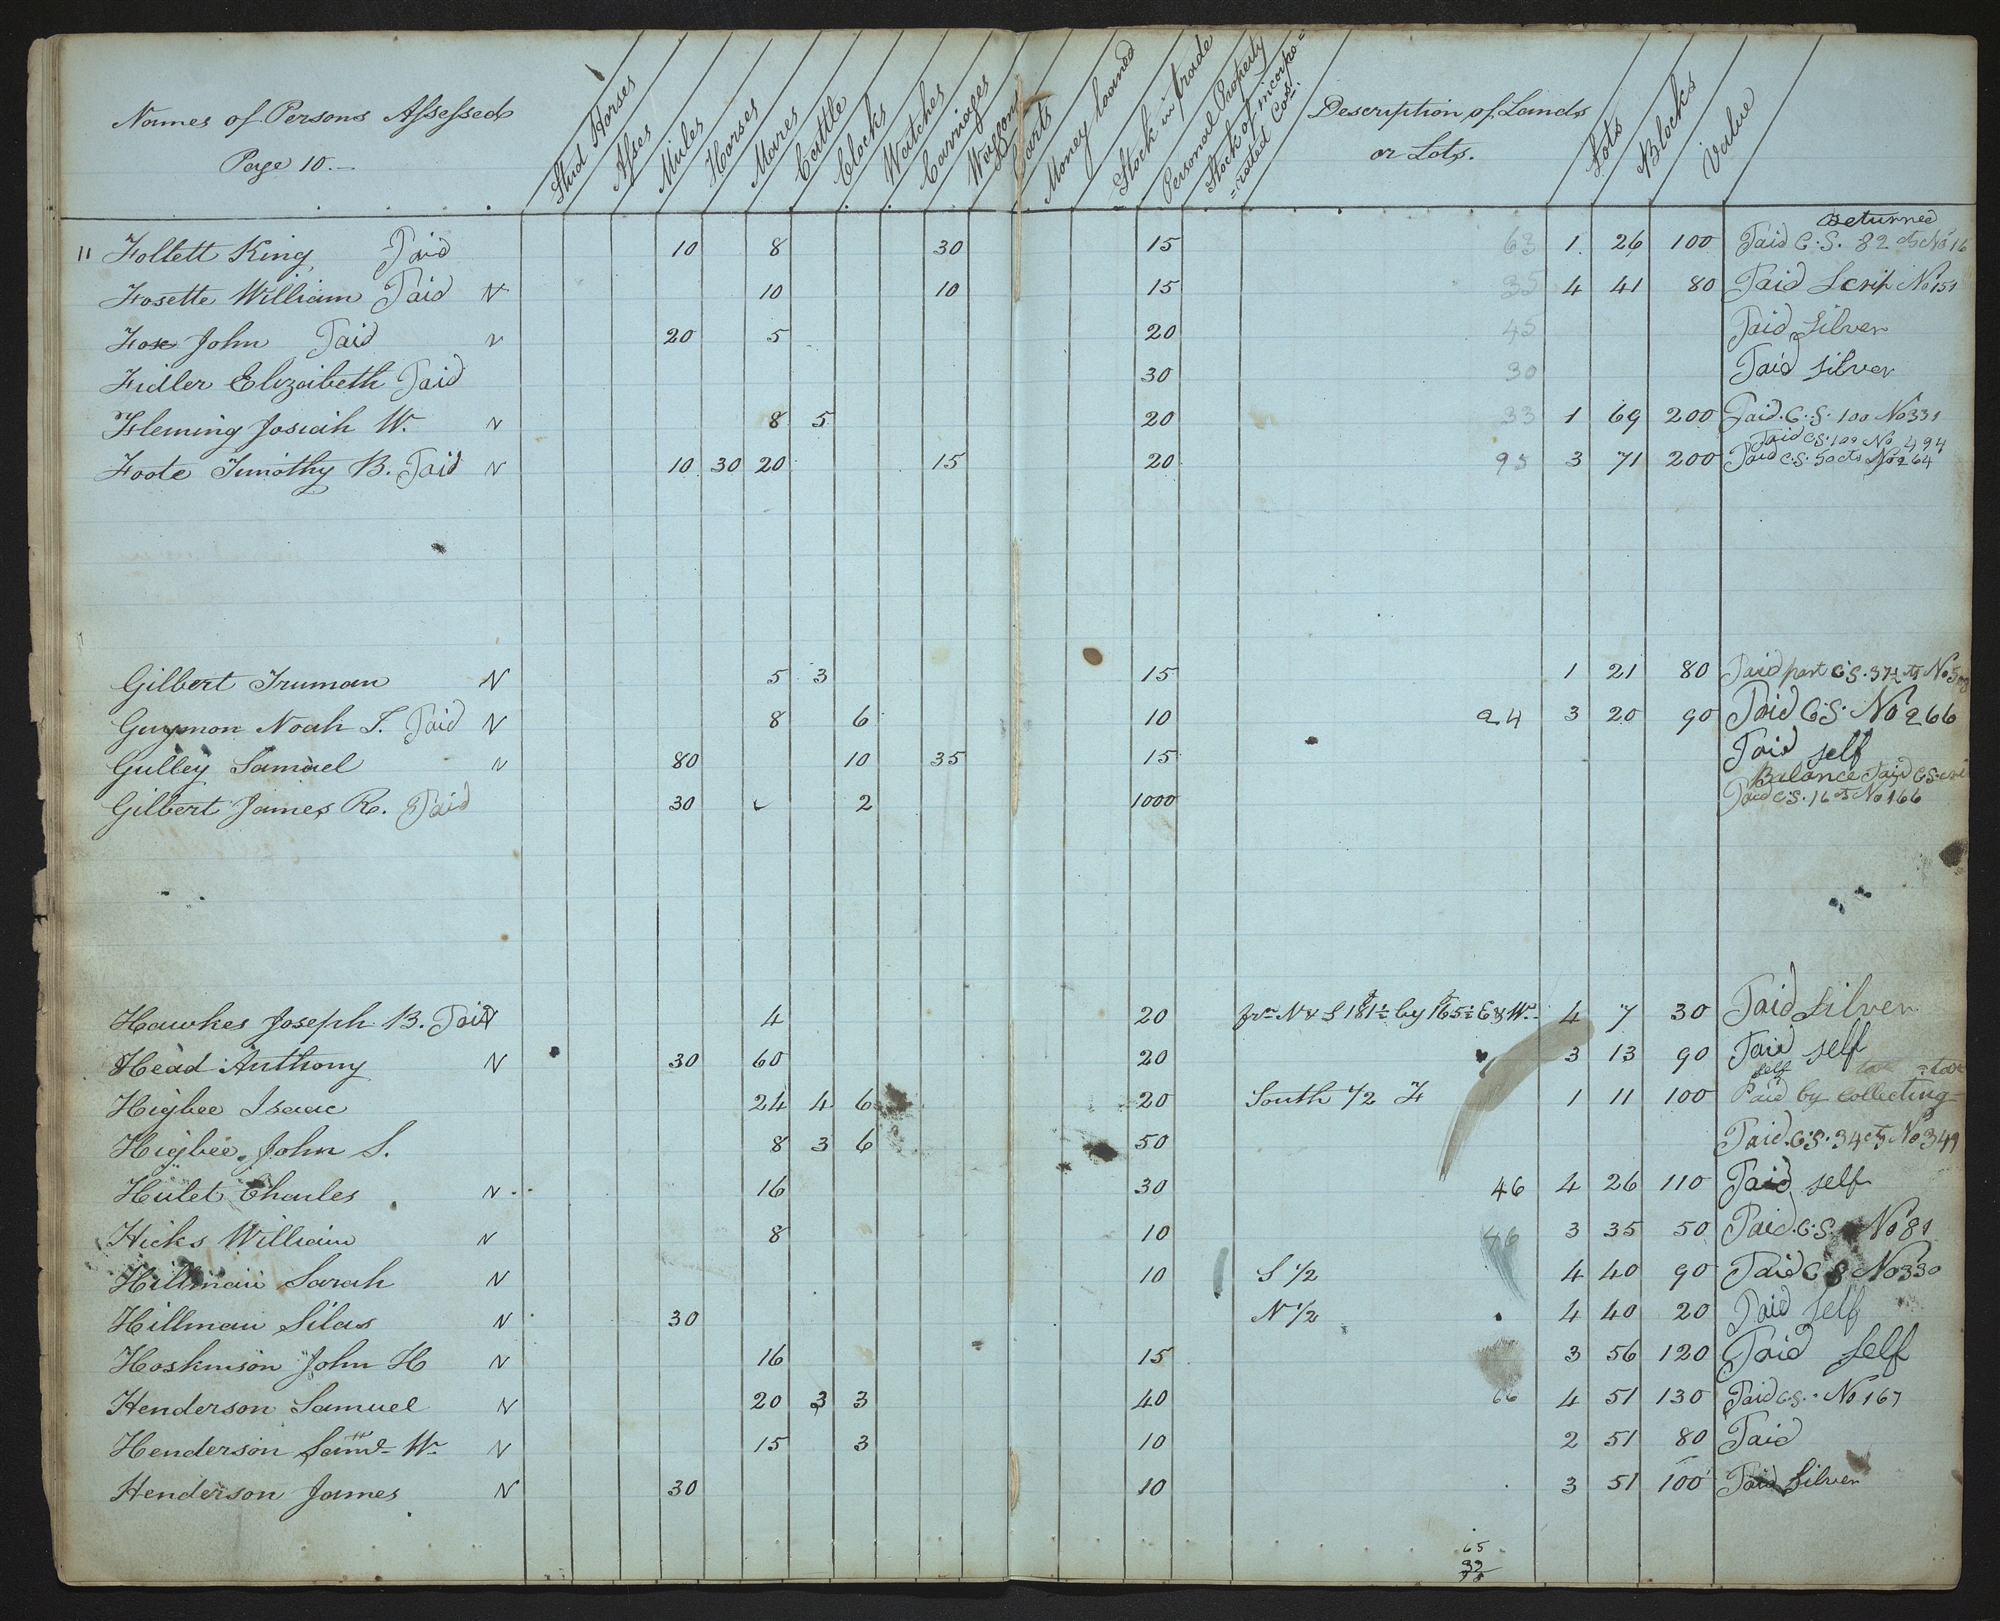 Names of Persons Assessed
Page 10.
Stud Horses
Asses
Mules
Horses
Mares
Cattle
Clocks
Watches
Carriages
Waggons
Carts
Money loaned
Stock in trade
Personal Property
Stock of incorpo=
=rated Cos.
Description of Lands
or Lots.
Lots
Blocks
Value
Returned
11 Follett King Paid 10 8 30 15 63 1 26 100 Paid C.S. 82 cts No 16
Fosette William Paid N 10 10 15 35 4 41 80 Paid Scrip No 151
Fox John Paid N 20 5 20 45 Paid Silver
Fidler Elizabeth Paid 30 30 Paid Silver
Fleming Josiah W. N 8 5 20 33 1 69 200 Paid C.S. 100 No 331
Paid C.S. 100 No 494
Foote Timothy B. Paid N 10 30 20 15 20 95 3 71 200 Paid C.S. 50 cts No 264
Gilbert Truman N 5 3 15 1 21 80 Paid part C.S. 37½ cts No
Guymon Noah T. Paid N 8 6 10 24 3 20 90 Paid C.S. No 266
Gulley Samuel N 80 10 35 15 Paid self
Balance Paid
Gilbert James R. Paid 30 2 1000 Paid C.S. 16 cts No 166
Hawkes Joseph B. Paid N 4 20 N & S 181½ by 165½ E & W 4 7 30 Paid Silver
Head Anthony N 30 60 20 3 13 90 Paid self
self
Higbee Isaac 24 4 6 20 South 1/2 1 11 100 Paid by Collecting
Higbee John S. 8 3 6 50 Paid C.S. 34 cts No 349
Hulet Charles N 16 30 46 4 26 110 Paid self
Hicks William N 8 10 46 3 35 50 Paid C.S. No 81
Hillman Sarah N 10 S 1/2 4 40 90 Paid C S No 330
Hillman Silas N 30 N 1/2 4 40 20 Paid self
Hoskinson John H N 16 15 3 56 120 Paid self
Henderson Samuel N 20 3 3 40 66 4 51 130 Paid C.S. No 167
Henderson Saml. Wm N 15 3 10 2 51 80 Paid
Henderson James N 30 10 3 51 100 Paid Silver
65